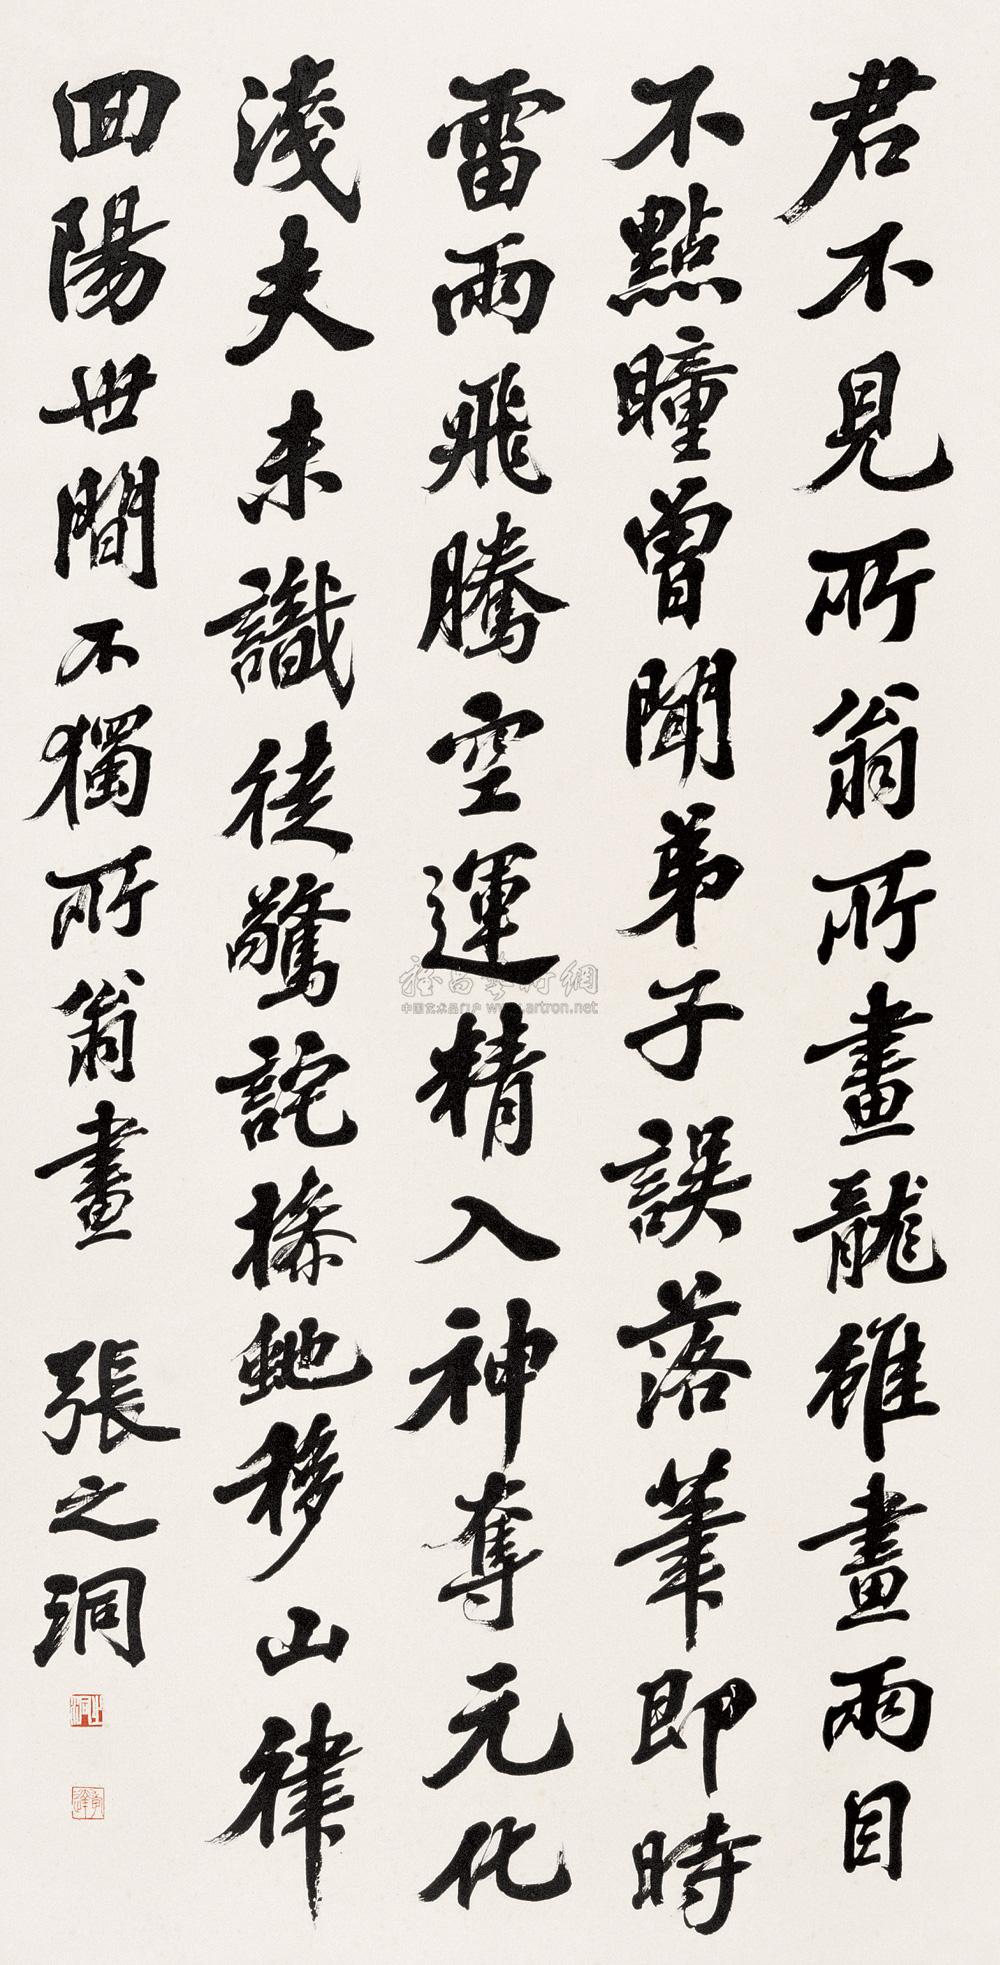 君不見所翁所畫龍雖畫兩目
不點瞳曾聞弟子誤落筆即時
雷雨飛騰空運精入神奪元化
淺夫未識徒驚詫操蛇移山律
回陽世間不獨所翁畫
張之洞
中国艺术品门户 www.artron.net